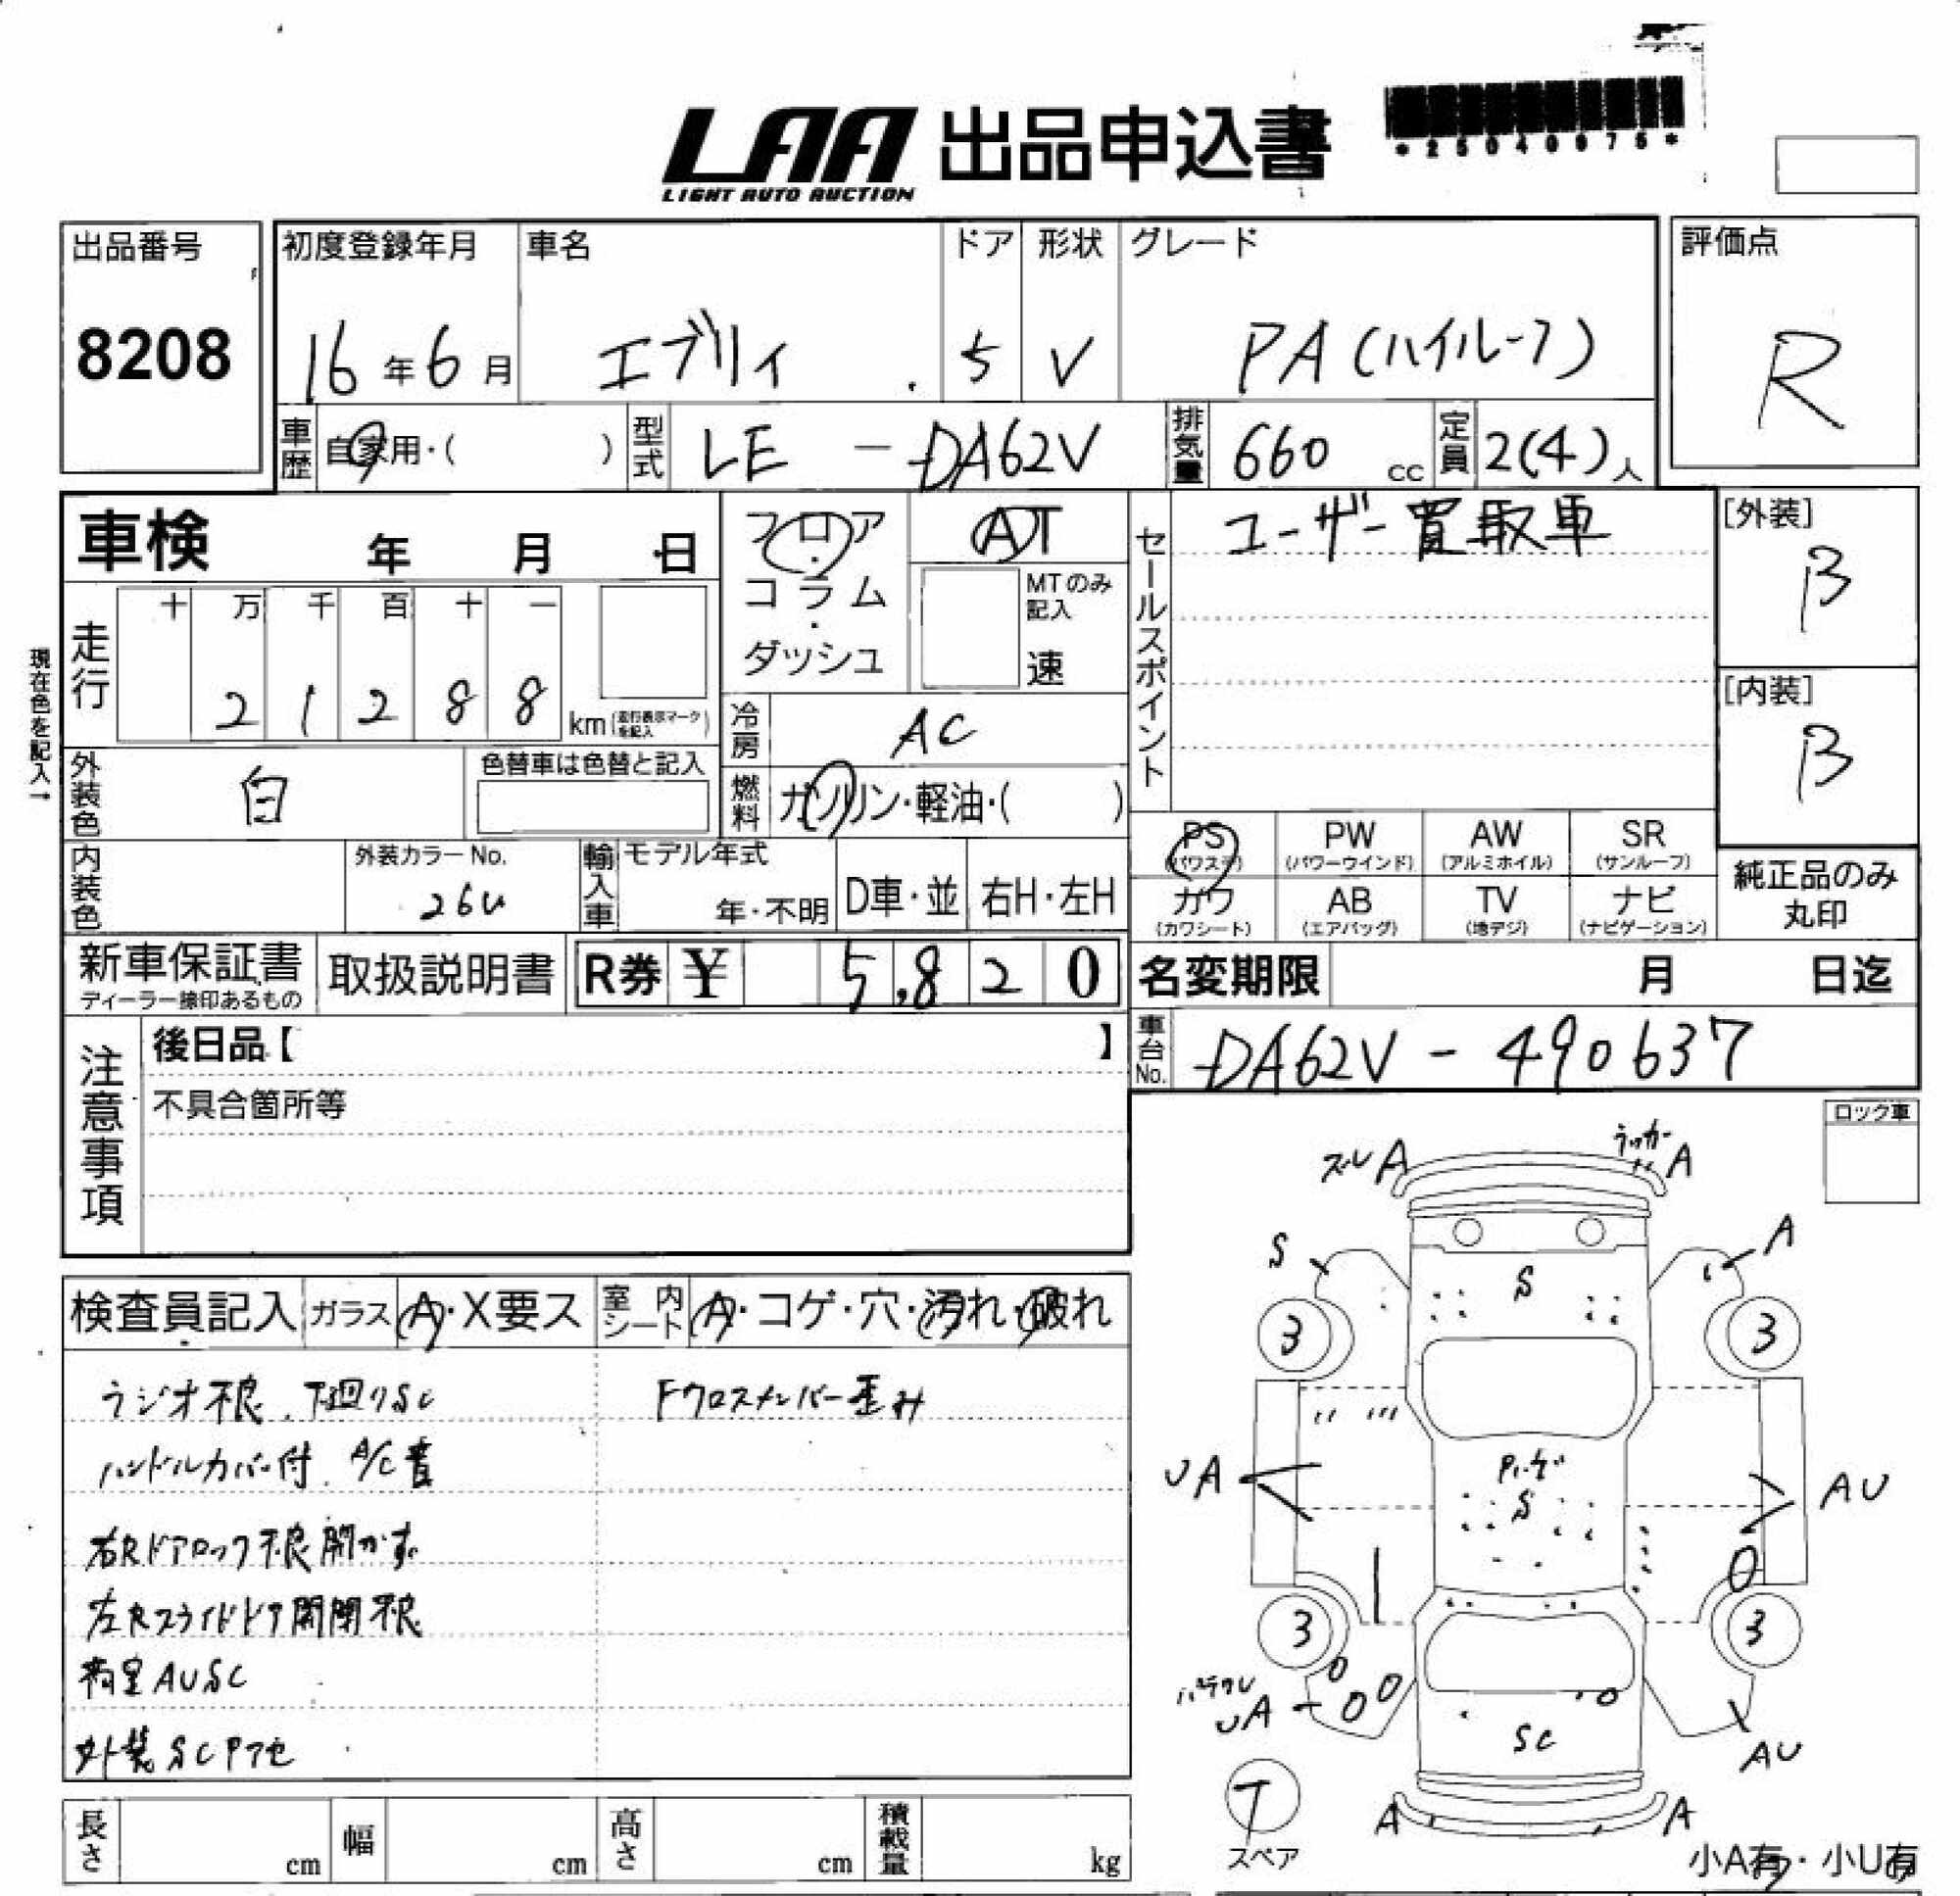 LAA 出品申込書
LIGHT AUTO AUCTION
*25040975*
出品番号
8208
初度登録年月
16年6月
車名
エブリィ
ドア
5
形状
V
グレード
PA(ハイルーフ)
評価点
R
車歴 自家用・( )
型式 LE - DA62V
排気量 660 cc
定員 2(4)人
車検 年 月 日
現在色を記入→
走行
十 万 千 百 十 一
2 1 2 8 8 km (走行表示マークを記入)
フロア・コラム・ダッシュ
AT
MTのみ記入
速
冷房 AC
燃料 ガソリン・軽油・( )
セールスポイント
ユーザー買取車
[外装]
B
[内装]
B
外装色 白
色替車は色替と記入
内装色
外装カラーNo.
26U
輸入車
モデル年式
年・不明
D車・並
右H・左H
PS (パワステ)
PW (パワーウインド)
AW (アルミホイル)
SR (サンルーフ)
カワ (カワシート)
AB (エアバッグ)
TV (地デジ)
ナビ (ナビゲーション)
純正品のみ
丸印
新車保証書
ディーラー捺印あるもの
取扱説明書
R券 ¥ 5,820
名変期限 月 日迄
車台No. DA62V - 490637
注意事項
後日品【 】
不具合箇所等
ロック車
検査員記入
ガラス A・X要ス
室内シート A・コゲ・穴・汚れ・破れ
ラジオ不良、下回りSC
Fクロスメンバー歪み
ハンドルカバー付、A/C
右Rドアロック不良開かず
左Rスライドドア開閉不良
荷室AUSC
外装SCPアセ
ズレ A
ラッカー A
S
A
S
3
3
UA
S
AU
3
3
UA
SC
AU
T
スペア
A
A
小A有・小U有
長さ cm
幅 cm
高さ cm
積載量 kg